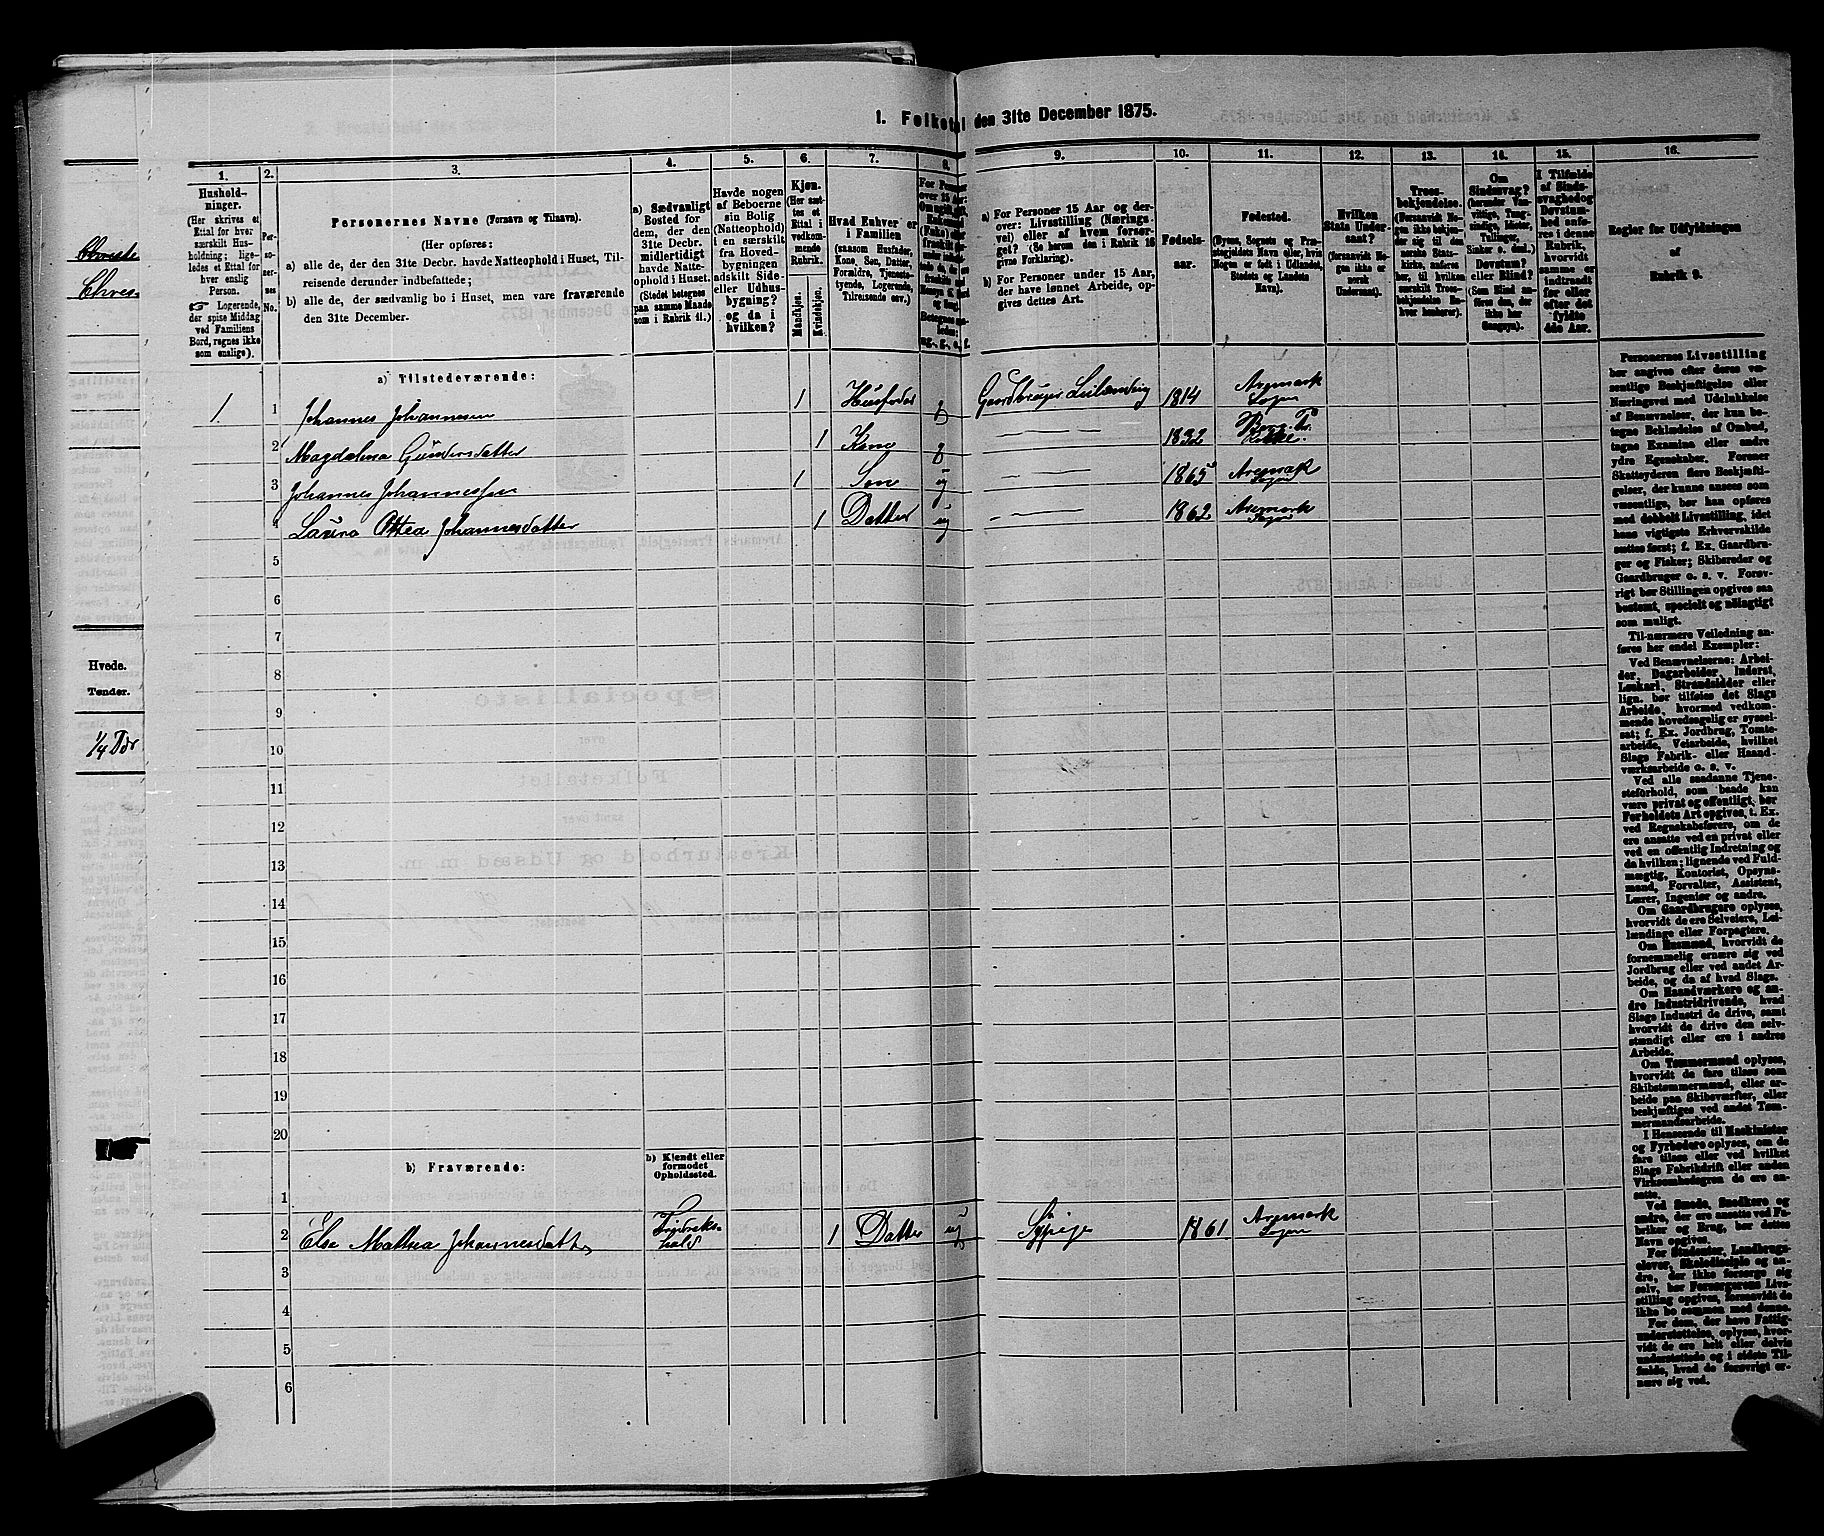 1. Folketal den 31te December 1875.
1.
2.
3.
4.
5.
6.
7.
8.
9.
10.
11.
12.
13.
14.
15.
16.
Hushold-
ninger.
(Her skrives et
Ettal for hver
særskilt Hus-
holdning; lige-
ledes et Ettal for
hver enslig
Person.
☞ Logerende,
der spise Middag
ved Familiens
Bord, regnes ikke
som enslige).
Per-
so-
ner-
nes
No.
Personernes Navne (Fornavn og Tilnavn).
(Her opføres:
a) alle de, der den 31te Decbr. havde Natteophold i Huset, Til-
reisende derunder indbefattede;
b) alle de, der sædvanlig bo i Huset, men vare fraværende
den 31te December.
a) Sædvanligt
Bosted for
dem, der den
31te Decbr.
midlertidigt
havde Natte-
ophold i Huset.
(Stedet betegnes
paa samme Maade
som i Rubrik 11.)
Havde nogen
af Beboerne
sin Bolig
(Natteophold)
i en særskilt
fra Hoved-
bygningen
adskilt Side-
eller Udhus-
bygning?
og da i
hvilken?
Kjøn.
(Her sæt-
tes et
Ettal i
vedkom-
mende
Rubrik.
Mandkjøn.
Kvindekjøn.
Hvad Enhver er
i Familien
(saasom Husfader,
Kone, Søn, Datter,
Forældre, Tjeneste-
tyende, Logerende,
Tilreisende osv.)
a) For Personer 15 Aar og der-
over: Livsstilling (Nærings-
vei) eller af hvem forsør-
get? (Se herom den i Rubrik 16
givne Forklaring).
b) For Personer under 15 Aar,
der have lønnet Arbeide, op-
gives dettes Art.
Fødsels-
aar.
Fødested.
(Byens, Sognets og Præ-
stegjeldets Navn eller, hvis
Nogen er født i Udlandet,
Stedets og Landets
Navn).
Hvilken
Stats Under-
saat?
(forsaavidt No-
gen ikke er
norsk
Undersaat).
Troes-
bekjendelse.
(Forsaavidt No-
gen ikke bekjen-
der sig til den
norske Stats-
kirke, anføres
her, til hvilken
særskilt Troes-
bekjendelse En-
hver henhører).
Om
Sindssvag?
(herunder Van-
vittige, Tung-
sindige, Idioter,
Tullinger,
Sinker o. desl.)
Døvstum?
eller Blind?
(Som Blind an-
føres den, der
ikke har
Gangsyn).
I Tilfælde
af Sinds-
svaghed og
Døvstum-
hed anfø-
res i denne
Rubrik,
hvorvidt
samme er
indtraadt
før eller
efter det
fyldte
4de Aar.
Regler for Udfyldningen
af
Rubrik 9.
a) Tilstedeværende:
1. 1 Johannes Johannesen 1 Husfader g Gaardbruger Leilænding 1814 Aremark Sogn
2 Magdalena Gundersdatter 1 Kone g 1822
3 Johannes Johannessen 1 Søn ug 1865 Aremark Sogn
4 Laura Othea Johannesdatter 1 Datter ug 1862 Aremark Sogn
5
6
7
8
9
10
11
12
13
14
15
16
17
18
19
20
b) Fraværende:
b) Kjendt eller
formodet
Opholdssted.
1
2 Else Mathea Johannesdatter Fredriks-
hald 1 Datter ug Sypige 1861 Aremark Sogn
3
4
5
6
Personernes Livsstilling
bør angives efter deres væ-
sentlige Beskjæftigelse eller
Næringsvei med Udelukkelse
af Benævnelser, der kun be-
tegne Beklædelse af Ombud,
tagne Examina eller andre
ydre Egenskaber. Forener
Skatteyderen flere Beskjæfti-
gelser, der kunne ansees som
væsentlige, bør han opføres
med dobbelt Livsstilling, idet
hans vigtigste Erhvervskilde
sættes først; f. Ex. Gaardbru-
ger og Fisker; Skibsreder og
Gaardbruger o. s. v. Forøv-
rigt bør Stillingen opgives saa
bestemt, specielt og nøiagtigt
som muligt.
Til nærmere Veiledning an-
føres her endel Exempler:
Ved Benævnelserne: Arbei-
der, Dagarbeider, Inderst,
Løskarl, Strandsidder eller
lign. bør tilføies det Slags
Arbeide, hvormed vedkom-
mende hovedsagelig er syssel-
sat; f. Ex. Jordbrug, Tomte-
arbeide, Veiarbeide, hvilket
Slags Fabrik- eller Haand-
værksarbeide o. s. v.
Ved alle saadanne Tjene-
steforhold, som baade kan
være privat og offentligt, bør
Forholdets Art opgives, t. Ex.
ved Regnskabsførere, om de
ere ansatte ved en privat eller
ved en offentlig Indretning og
da hvilken; lignende ved Fuld-
mægtig, Kontorist, Opsyns-
mand, Forvalter, Assistent,
Lærer, Ingeniør og andre.
Om Gaardbrugere oplyses,
hvorvidt de ere Selveiere, Lei-
lændinge eller Forpagtere.
Om Husmænd, hvorvidt de
fornemmelig ernære sig ved
Jordbrug eller ved andet Ar-
beide, og da af hvad Slags.
Om Haandværkere og an-
dre Industridrivende, hvad
Slags Industri de drive, samt
hvorvidt de drive den selv-
stændigt eller ere i andres
Arbeide.
Om Tømmermænd oplyses,
hvorvidt de fare tilsøs som
Skibstømmermænd, eller ar-
beide paa Skibsværfter, eller
beskjæftiges ved andet Tøm-
mermandsarbeide.
I Henseende til Maskinister
og Fyrbødere oplyses, om de
fare tilsøs eller ved hvilket
Slags Fabrikdrift eller anden
Virksomhedsgren de ere an-
satte.
Ved Smede, Snedkere og
andre, der ere ansatte ved Fa-
briker og Brug, bør dettes
Navn opgives.
For Studenter, Landbrugs-
elever, Skoledisciple og an-
dre, der ikke forsørge sig
selv, bør Forsørgerens Livs-
stilling opgives, forsaavidt de
ikke bo sammen med denne.
For dem, der have Fattig-
understøttelse, oplyses, hvor-
vidt de ere helt eller delvis
understøttede og i sidste Til-
fælde, hvad de forøvrigt er-
nære sig ved.
Hvede.
Tønder.
1/4 Tdr